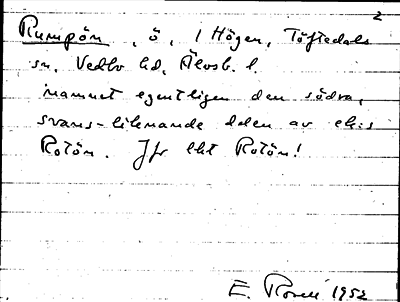 2
Rumpön, ö, i Högen, Töftedals
sn, Vedbo hd, Älvsb. l.
namnet egentligen den södra,
svans-liknande delen av ek:s
Rotön. Jfr ekt Rotön!
E. Rosell 1952